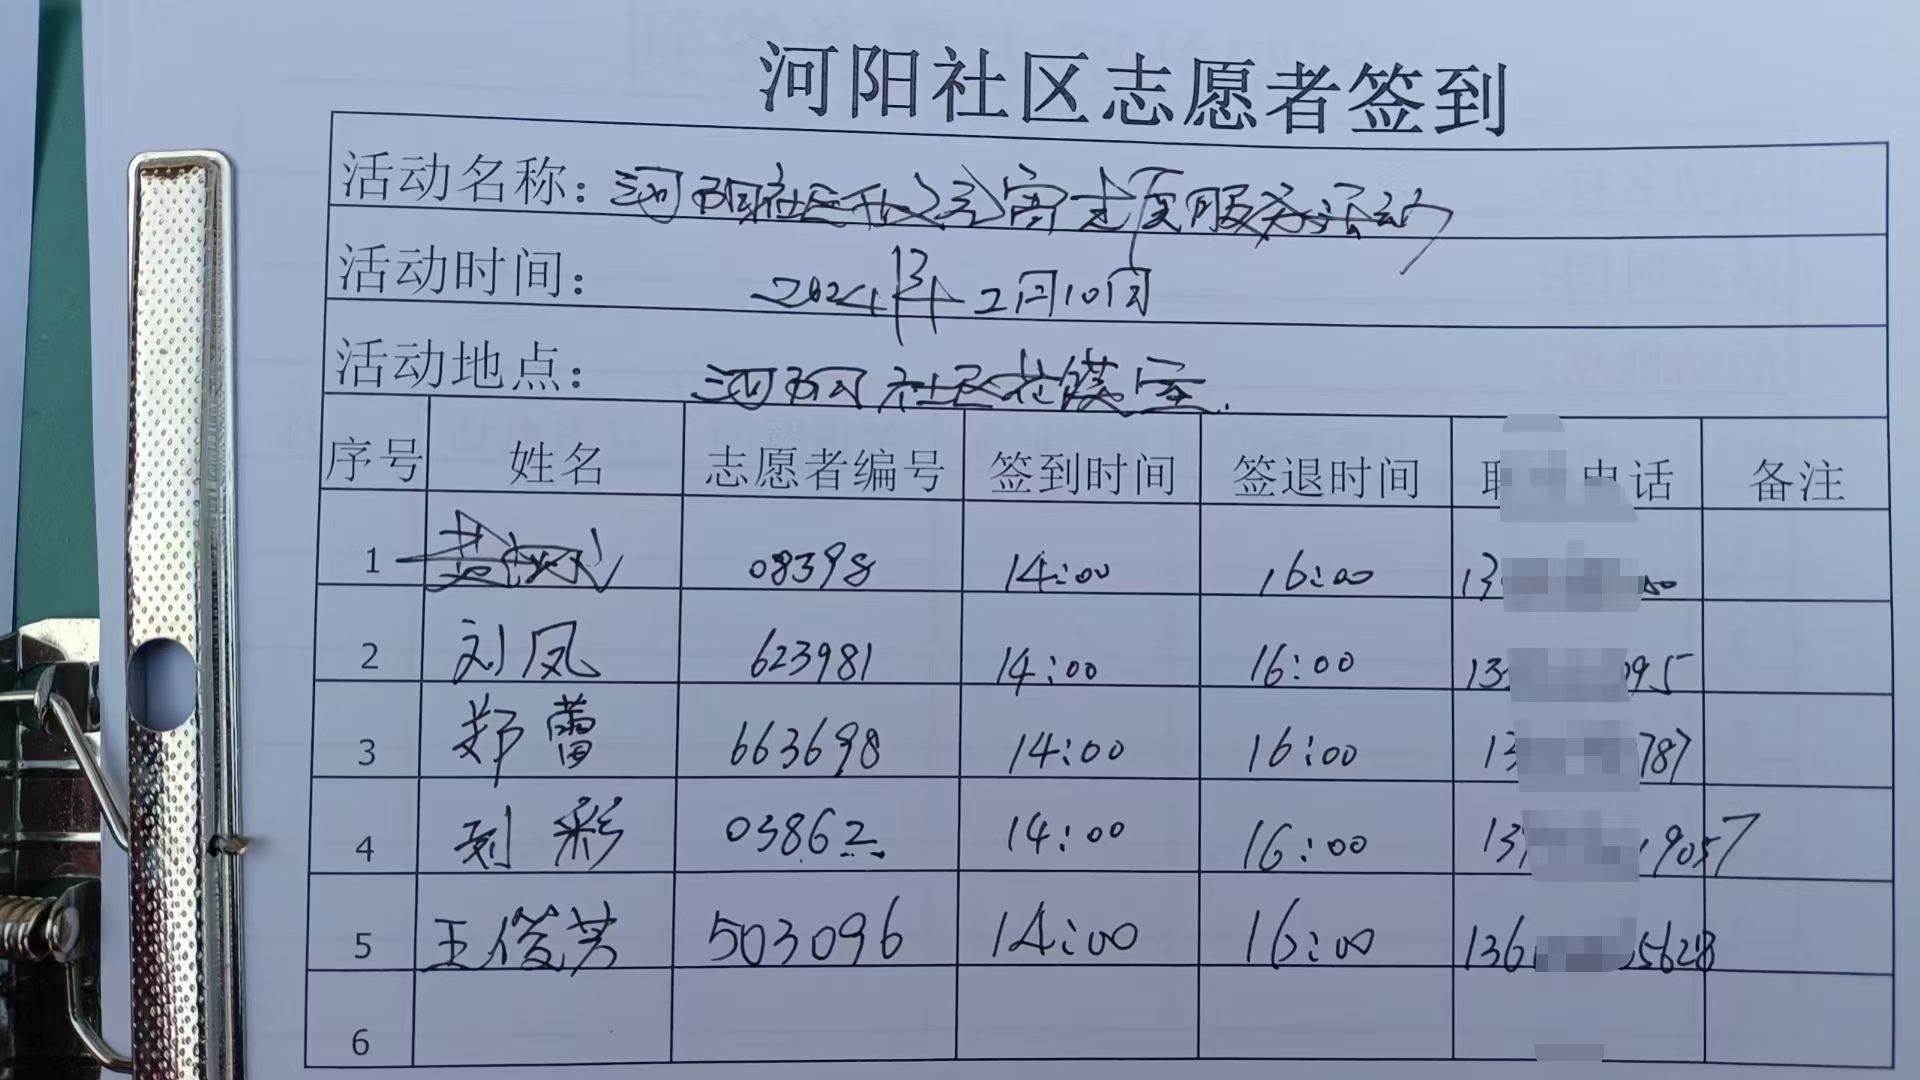 河阳社区志愿者签到
活动名称：河阳社区开展元宵志愿服务活动
活动时间：2024年2月10日
活动地点：河阳社区
序号 姓名 志愿者编号 签到时间 签退时间 电话 备注
1 08398 14:00 16:00 13
2 刘凤 623981 14:00 16:00 13 095
3 郑蕾 663698 14:00 16:00 13 787
4 刘彩 03862 14:00 16:00 13 19057
5 王俊芳 503096 14:00 16:00 136 5628
6